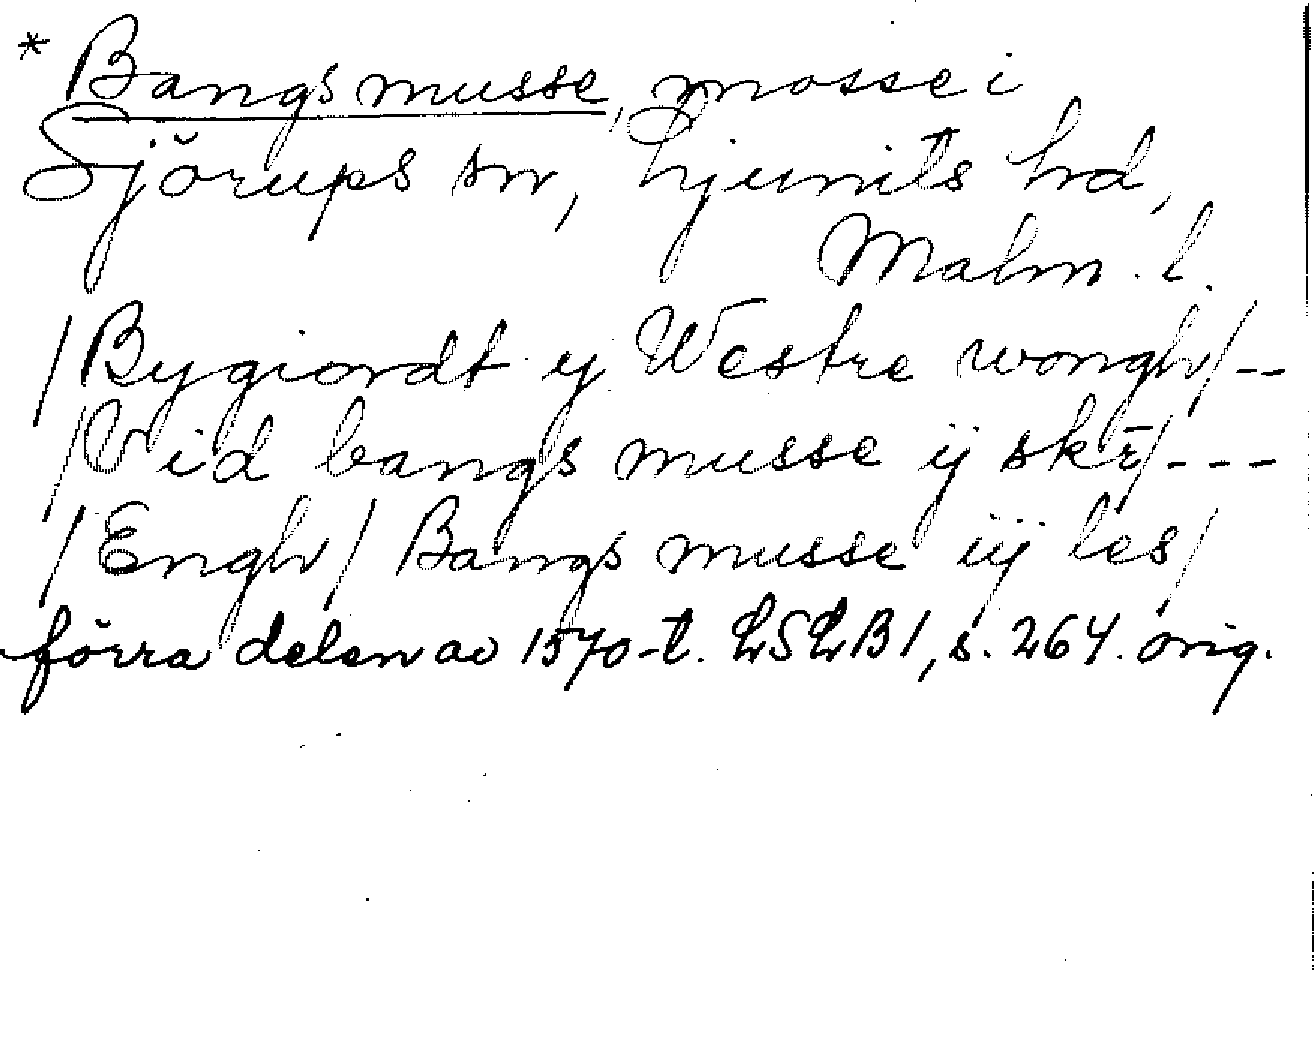 * Bangsmusse, mosse i
Sjörups sn, Ljunits hd,
Malm. l.
/Bygiordt y Westre wongh/--
/Vid bangs musse ÿ skr̄/---
/Engh/ Bangs musse iij les/
förra delen av 1570-t. LSLB1, s. 264. orig.